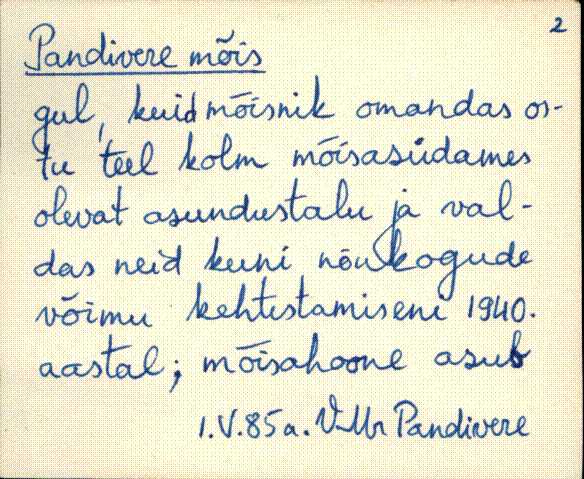 2
Pandivere mõis
gul, kuid mõisnik omandas os-
tu teel kolm mõisasüdames
olevat asundustalu ja val-
das neid kuni nõukogude
võimu kehtestamiseni 1940.
aastal; mõisahoone asub
1.V.85a. V-Mr Pandivere